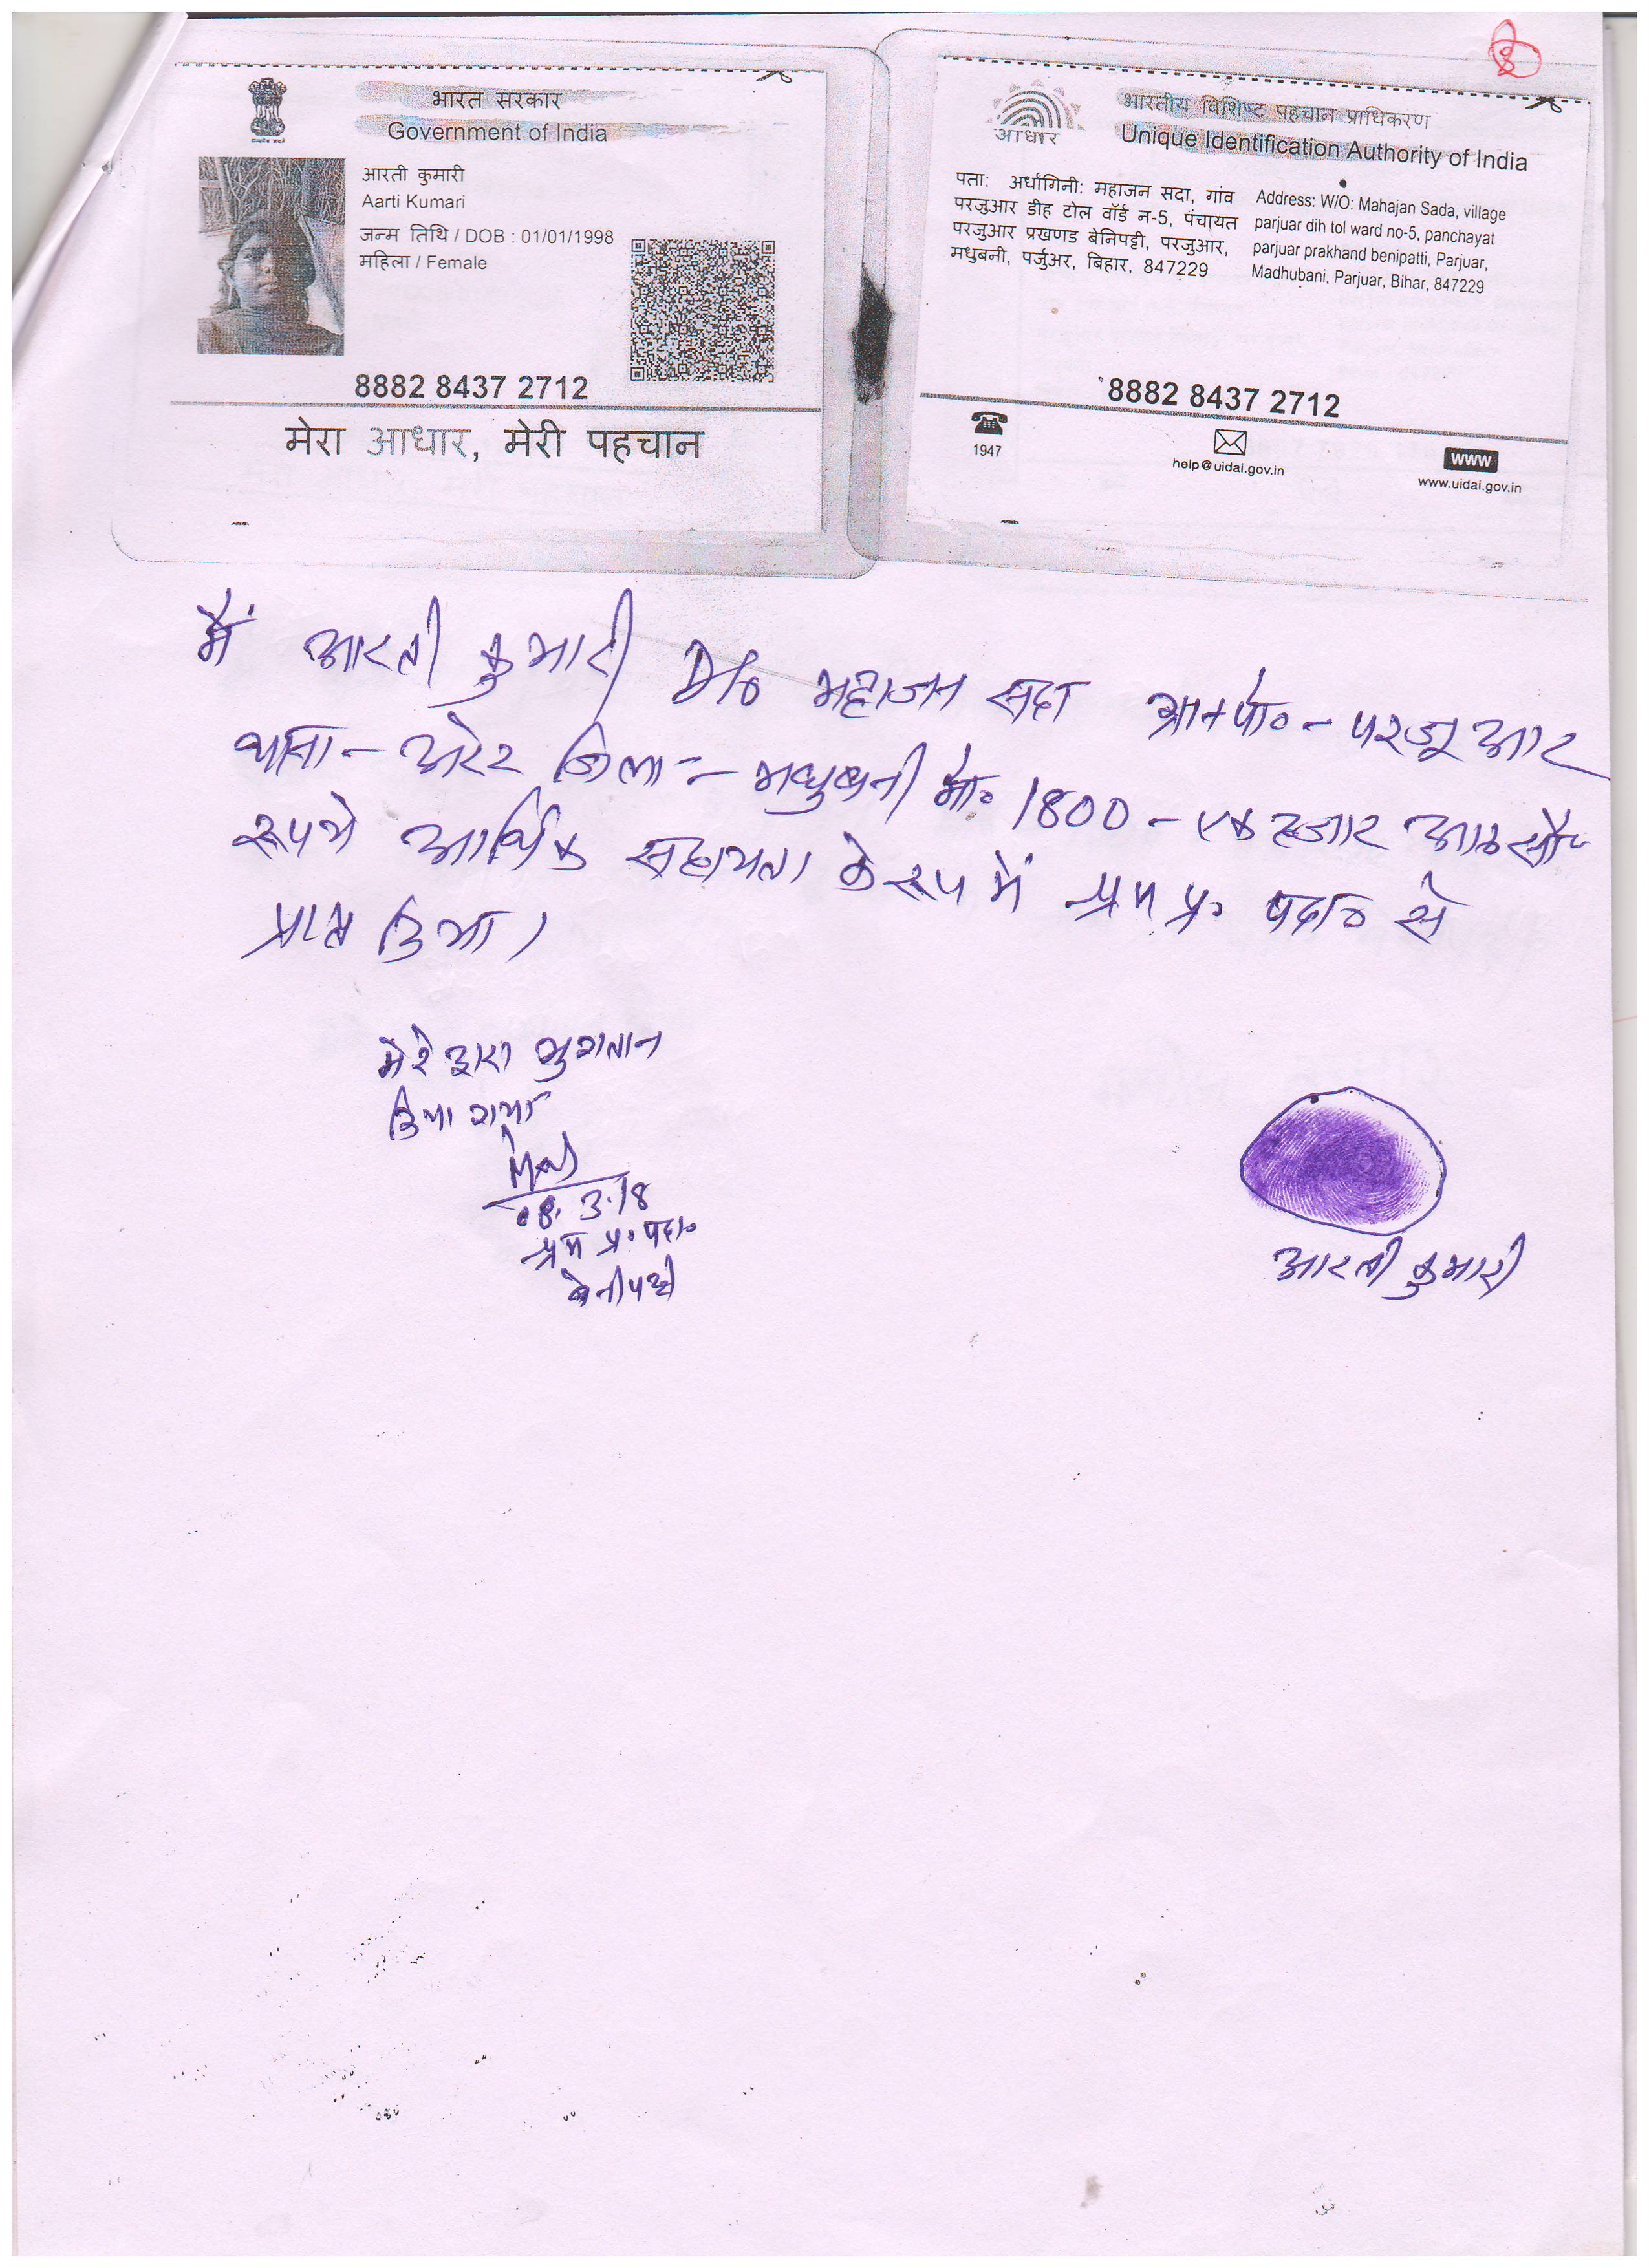 8
भारत सरकार
Government of India
आरती कुमारी
Aarti Kumari
जन्म तिथि / DOB : 01/01/1998
महिला / Female
8882 8437 2712
मेरा आधार, मेरी पहचान
आधार
भारतीय विशिष्ट पहचान प्राधिकरण
Unique Identification Authority of India
पता: अर्धांगिनी: महाजन सदा, गांव
परजुआर डीह टोल वॉर्ड न-5, पंचायत
परजुआर प्रखणड बेनिपट्टी, परजुआर,
मधुबनी, पर्जुअर, बिहार, 847229
Address: W/O: Mahajan Sada, village
parjuar dih tol ward no-5, panchayat
parjuar prakhand benipatti, Parjuar,
Madhubani, Parjuar, Bihar, 847229
8882 8437 2712
1947
help@uidai.gov.in
www
www.uidai.gov.in
मैं आरती कुमारी D/o महाजन सदा ग्रा+पो०- परजूआर
थाना - अरेर जिला - मधुबनी मो० 1800 - एक हजार आठ सौ
रूपये आर्थिक सहायता के रूप में श्रम प्र० पदा० से
प्राप्त किया।
मेरे द्वारा भुगतान
किया गया
08.3.18
श्रम प्र० पदा०
बेनीपट्टी
आरती कुमारी